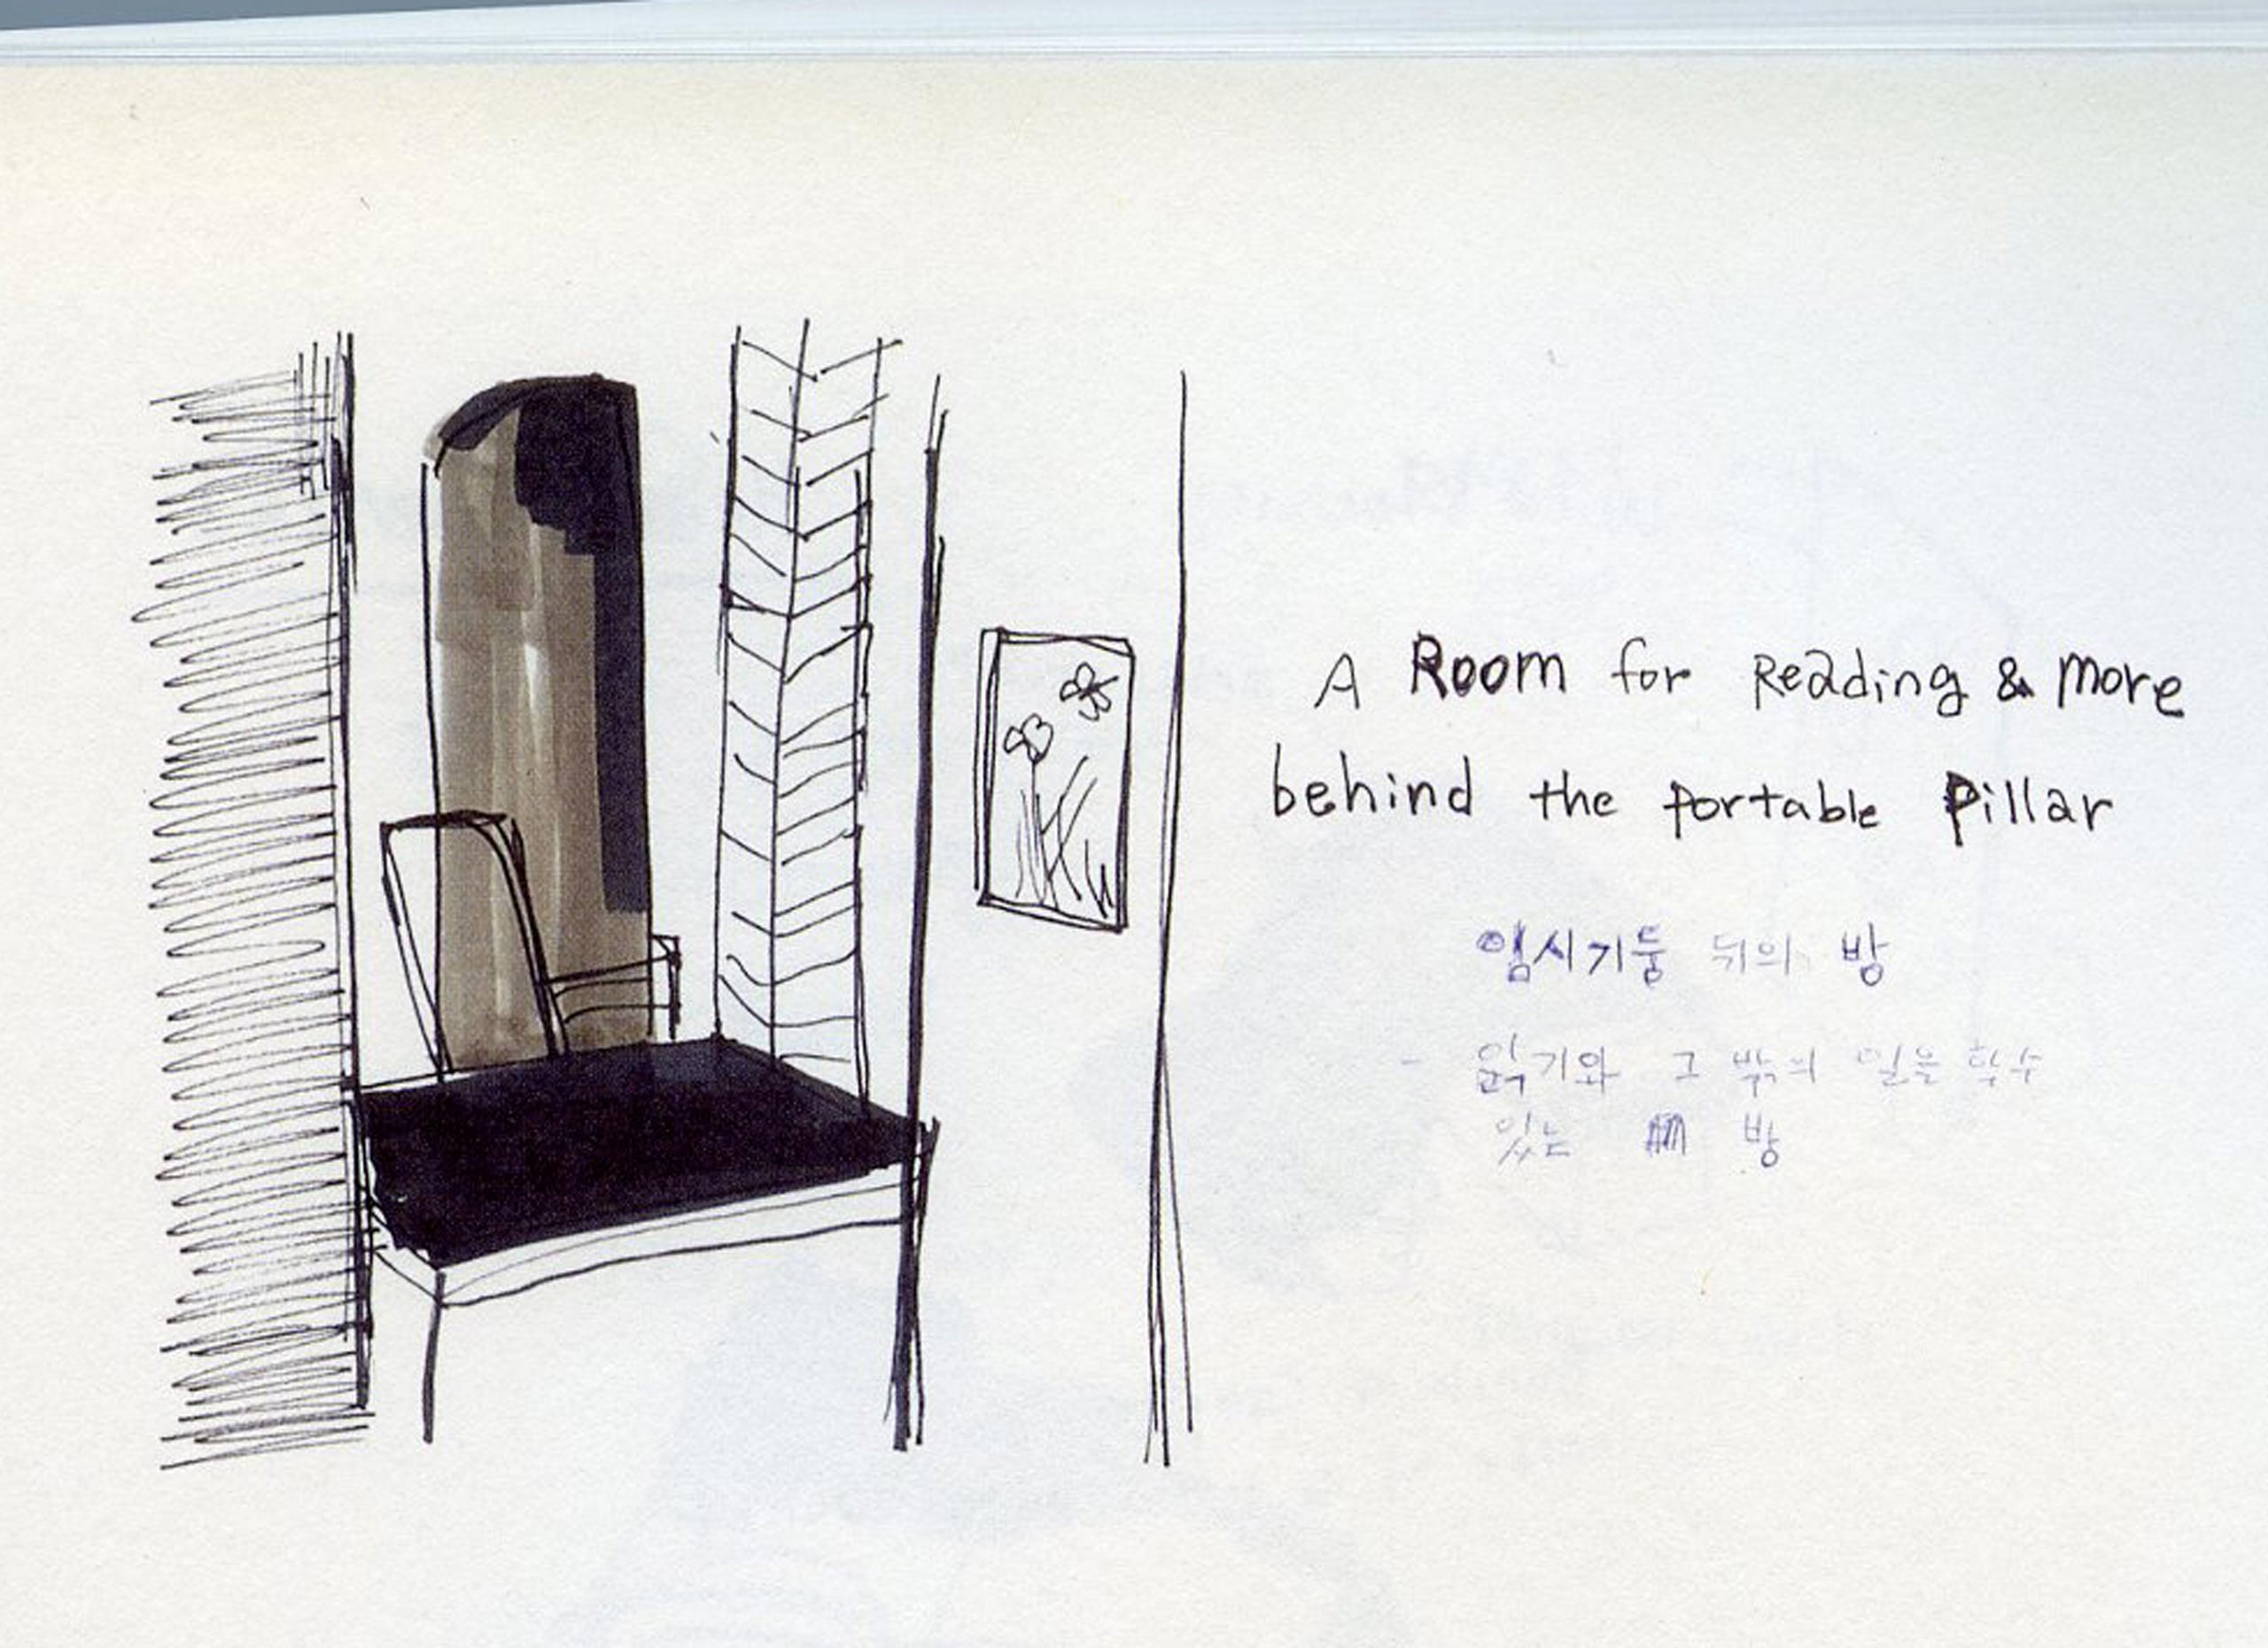 A Room for Reading & more
behind the portable Pillar
임시기둥 뒤의 방
- 읽기와 그 밖의 일을 할수
있는 방